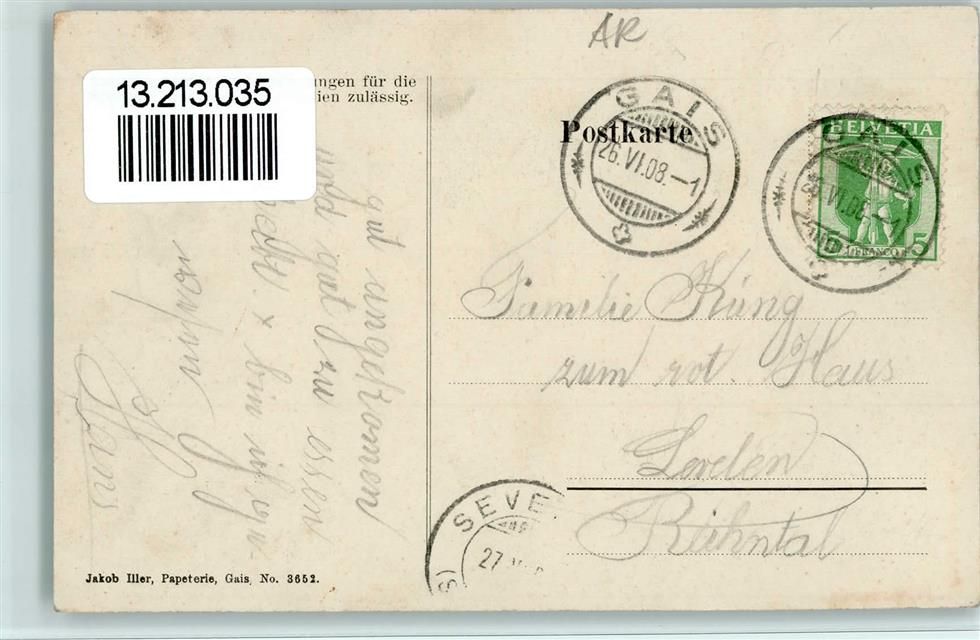 AR
13.213.035
ungen für die
ien zulässig.
Postkarte
GAIS
26.VI.08.–1
HELVETIA
5 5
FRANCO
GAIS
26.VI.08.–1
gut angekomen
und gut zu essen
x bin
Hans
Familie Küng
zum rot. Haus
Rhintal
SEVE
27
Jakob Iller, Papeterie, Gais, No. 3652.